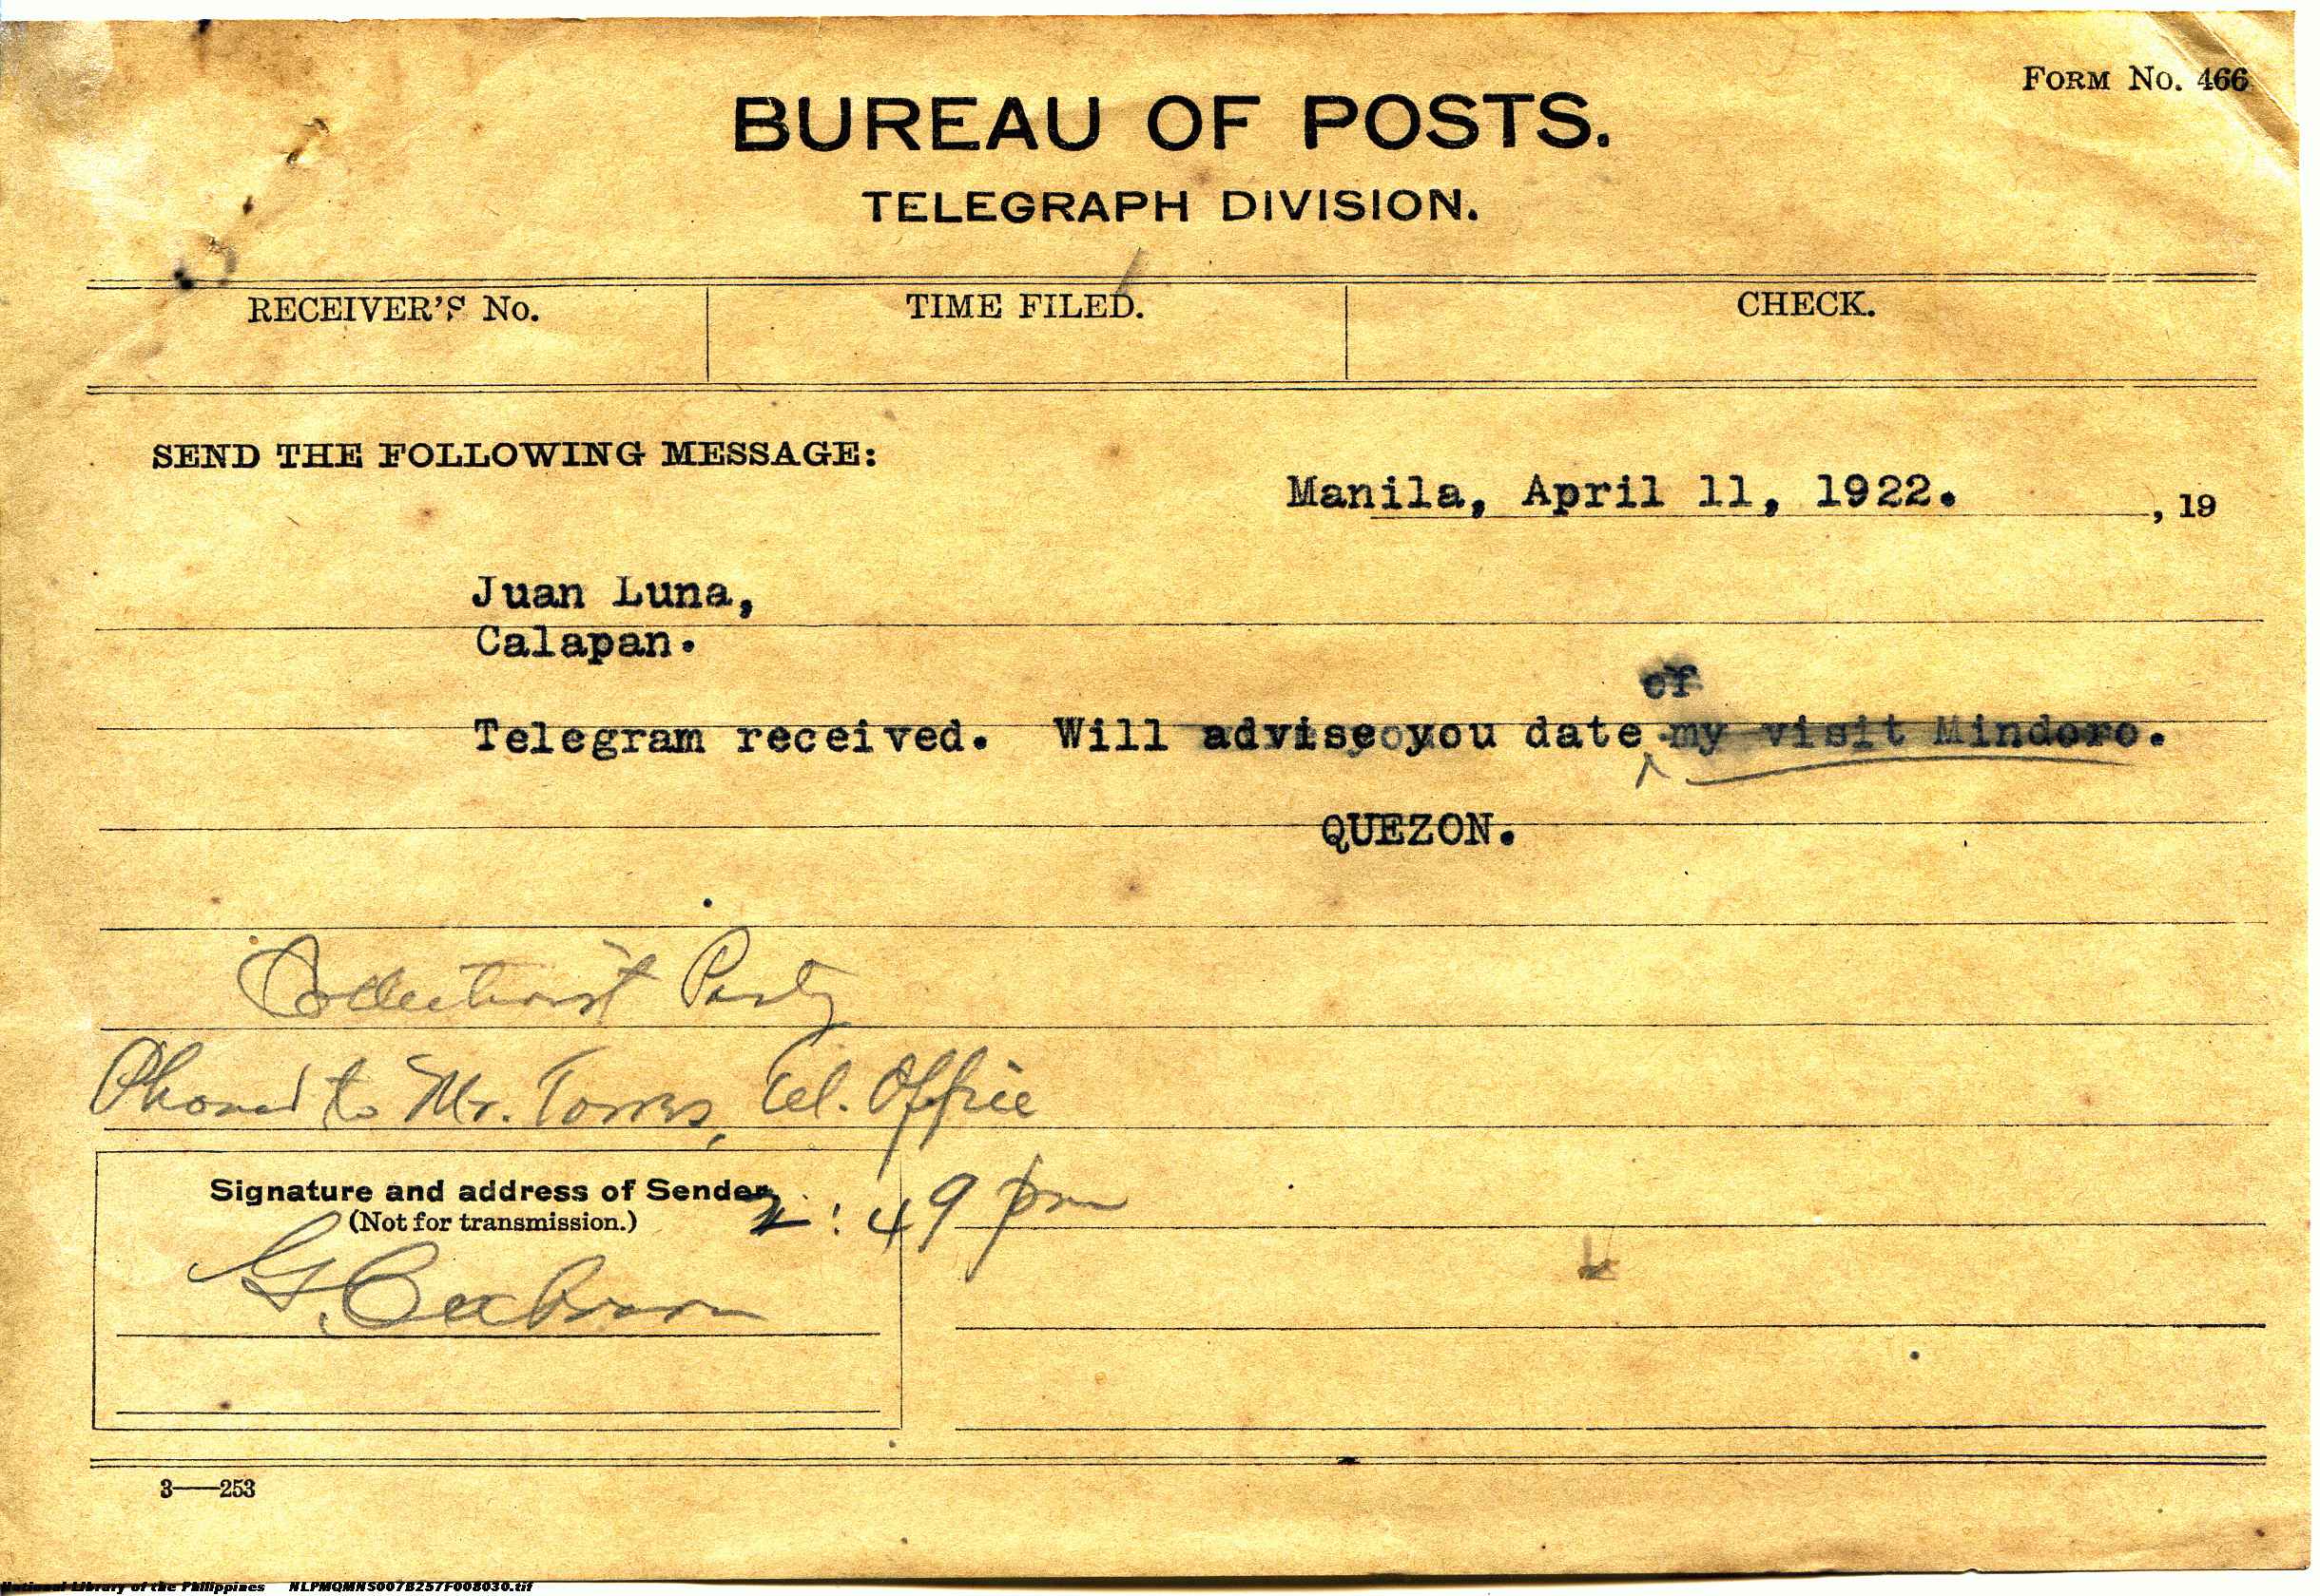 FORM No. 466
BUREAU OF POSTS.
TELEGRAPH DIVISION.
RECEIVER'S No. TIME FILED. CHECK.
SEND THE FOLLOWING MESSAGE:
Manila, April 11, 1922. , 19
Juan Luna,
Calapan.
of
Telegram received. Will advise you date my visit Mindoro.
QUEZON.
Collectivist Party
Phoned to Mr. Torres, Tel. Office
2:49 pm
Signature and address of Sender
(Not for transmission.)
3—253
National Library of the Philippines NLPMQMNS007B257F008030.tif